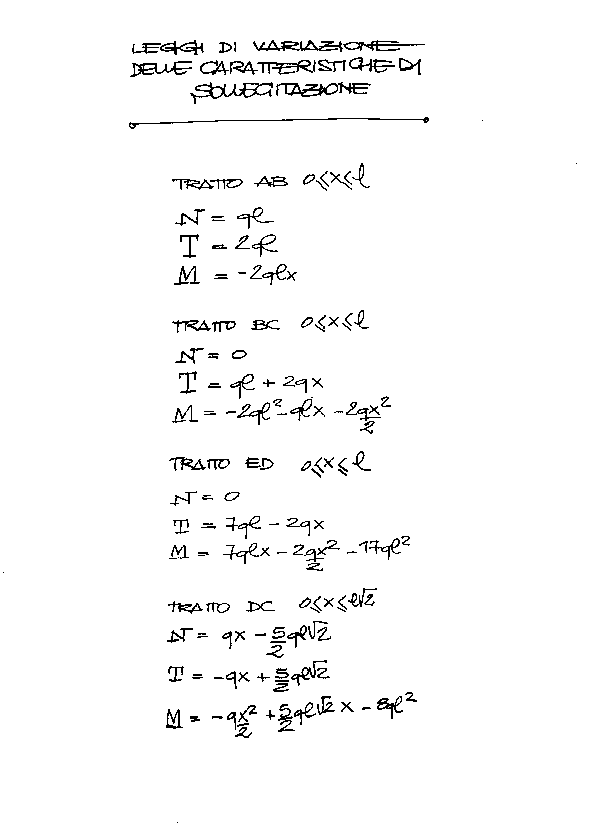 LEGGI DI VARIAZIONE
DELLE CARATTERISTICHE DI
SOLLECITAZIONE
TRATTO AB 0⩽x⩽l
N = ql
T = 2ql
M = -2qlx
TRATTO BC 0⩽x⩽l
N = 0
T = ql + 2qx
M = -2ql² - qlx - 2qx²/2
TRATTO ED 0⩽x⩽l
N = 0
T = 7ql - 2qx
M = 7qlx - 2qx²/2 - 17ql²
TRATTO DC 0⩽x⩽l√2
N = qx - 5/2 ql√2
T = -qx + 5/2 ql√2
M = -qx²/2 + 5/2 ql√2 x - 8ql²